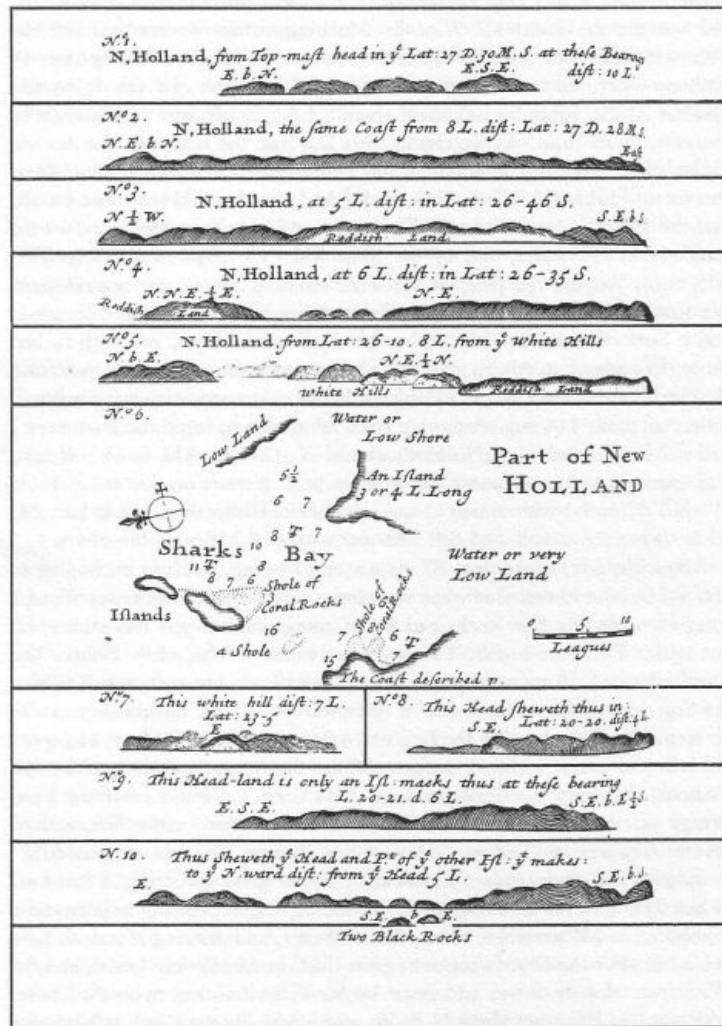 N.1.
N. Holland, from Top-mast head in yᵉ Lat: 27 D. 30 M. S. at these Bearingˢ
E. b. N. E. S. E. dist: 10 L.
Nº 2.
N. Holland, the same Coast from 8 L. dist: Lat: 27 D. 28 M s.
N. E. b. N.
Nº 3.
N. Holland, at 7 L. dist: in Lat: 26-46 S.
N ½ W. S. E. b. s.
Reddish Land
Nº 4.
N. Holland, at 6 L. dist: in Lat: 26-35 S.
N. N. E. ¼ E. N. E.
Reddish Land
Nº 5.
N. Holland, from Lat: 26-10: 8 L. from yᵉ White Hills
N. b. E. N. E. ¼ N.
White Hills Reddish Land
Nº 6.
Low Land
Water or
Low Shore
Part of New
HOLLAND
5½
An Island
3 or 4 L. Long
6 7
8 7
Sharks 10 8 Bay
11 7 8
8 7 6 8
Water or very
Low Land
Shole of
Coral Rocks
13
Islands
16
a Shole
7 6 7
7 6
15
5 10
Leagues
The Coast described p.
Nº 7. This white hill dist: 7 L.
Lat:
E
Nº 8. This Head sheweth thus in
S. E. Lat: 20-20. dist: 4 L
N. 9. This Head-land is only an Isl: maeks thus at these bearing
L. 20-21. d. 6 L.
E. S. E. S. E. b. E ½ s.
N. 10. Thus Sheweth yᵉ Head and Pᵗ of yᵉ other Isl: yᵗ makes:
to yᵉ N. ward dist: from yᵉ Head 5 L.
E. S. E. b. s.
S. E. b E.
Two Black Rocks